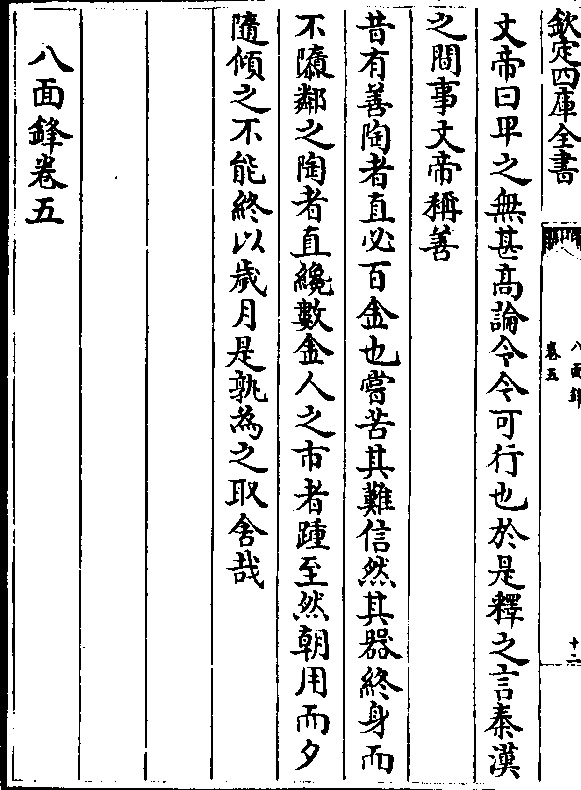 欽定四庫全書
八面鋒
卷五
十二
文帝曰卑之無甚高論令今可行也於是釋之言秦漢
之間事文帝稱善
昔有善陶者直必百金也嘗苦其難信然其器終身而
不隳鄰之陶者直纔數金人之市者踵至然朝用而夕
隨傾之不能終以歲月是孰為之取舍哉
八面鋒卷五